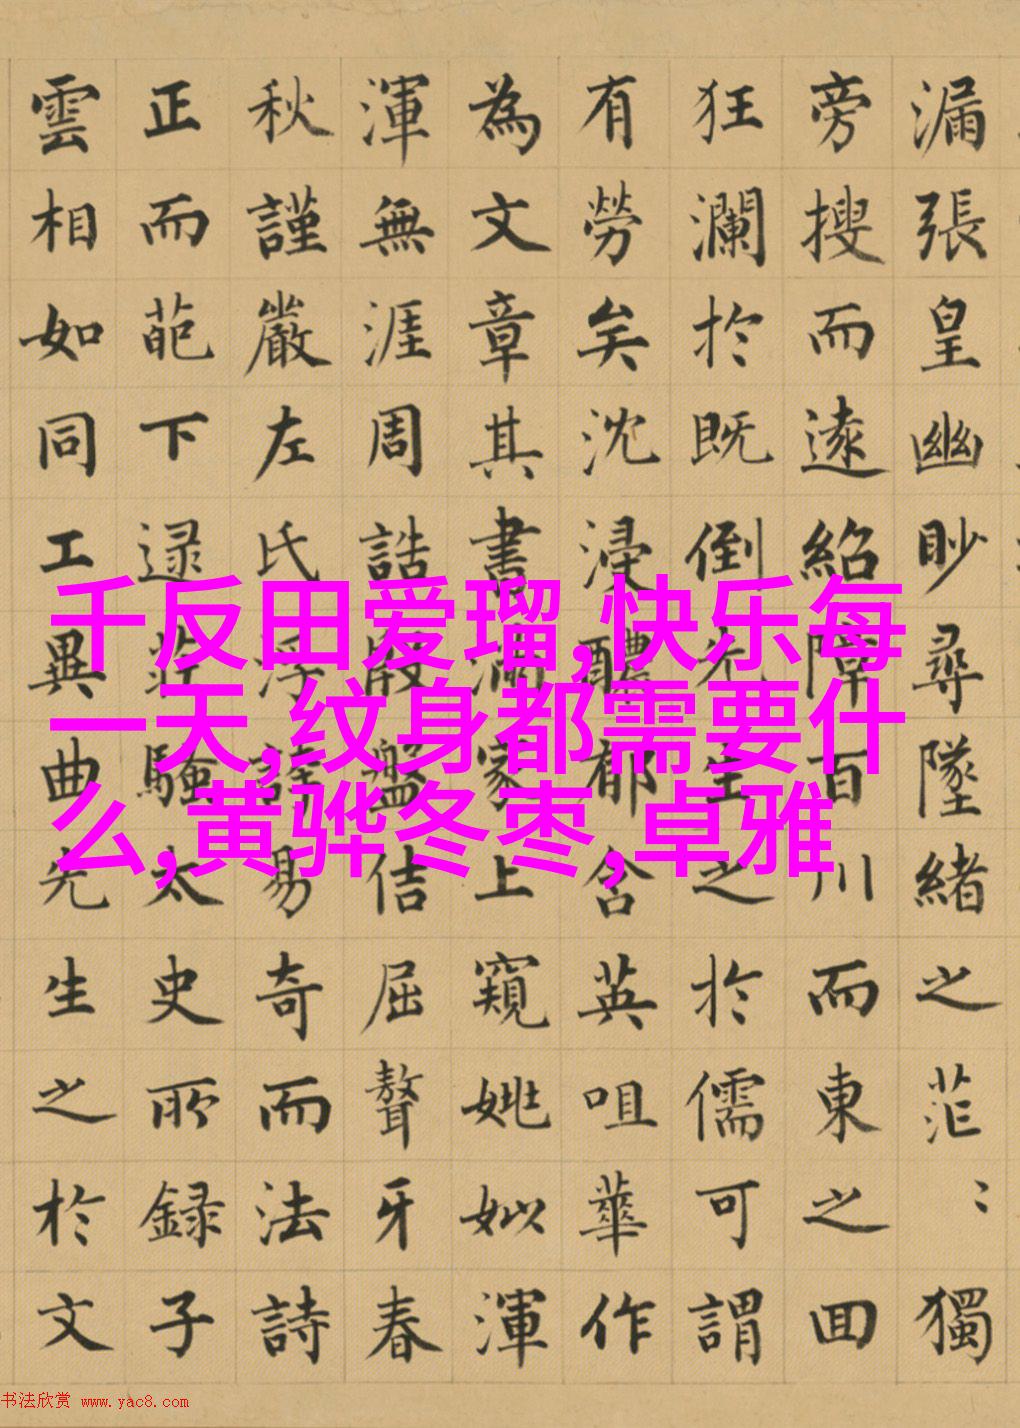 漏張皇幽眇尋墜緒之茫〻獨
旁搜而遠紹障百川而東之回
狂瀾於既倒先生之於儒可謂
有勞矣沈浸醲郁含英咀華作
為文章其書滿家上窺姚姒渾
渾無涯周誥殷盤佶屈聱牙春
秋謹嚴左氏浮誇易奇而法詩
正而葩下逮莊騷太史所録子
雲相如同工異曲先生之於文
千反田爱瑠,快乐每
一天,纹身都需要什
么,黄骅冬枣,卓雅
书法欣赏 www.yac8.com